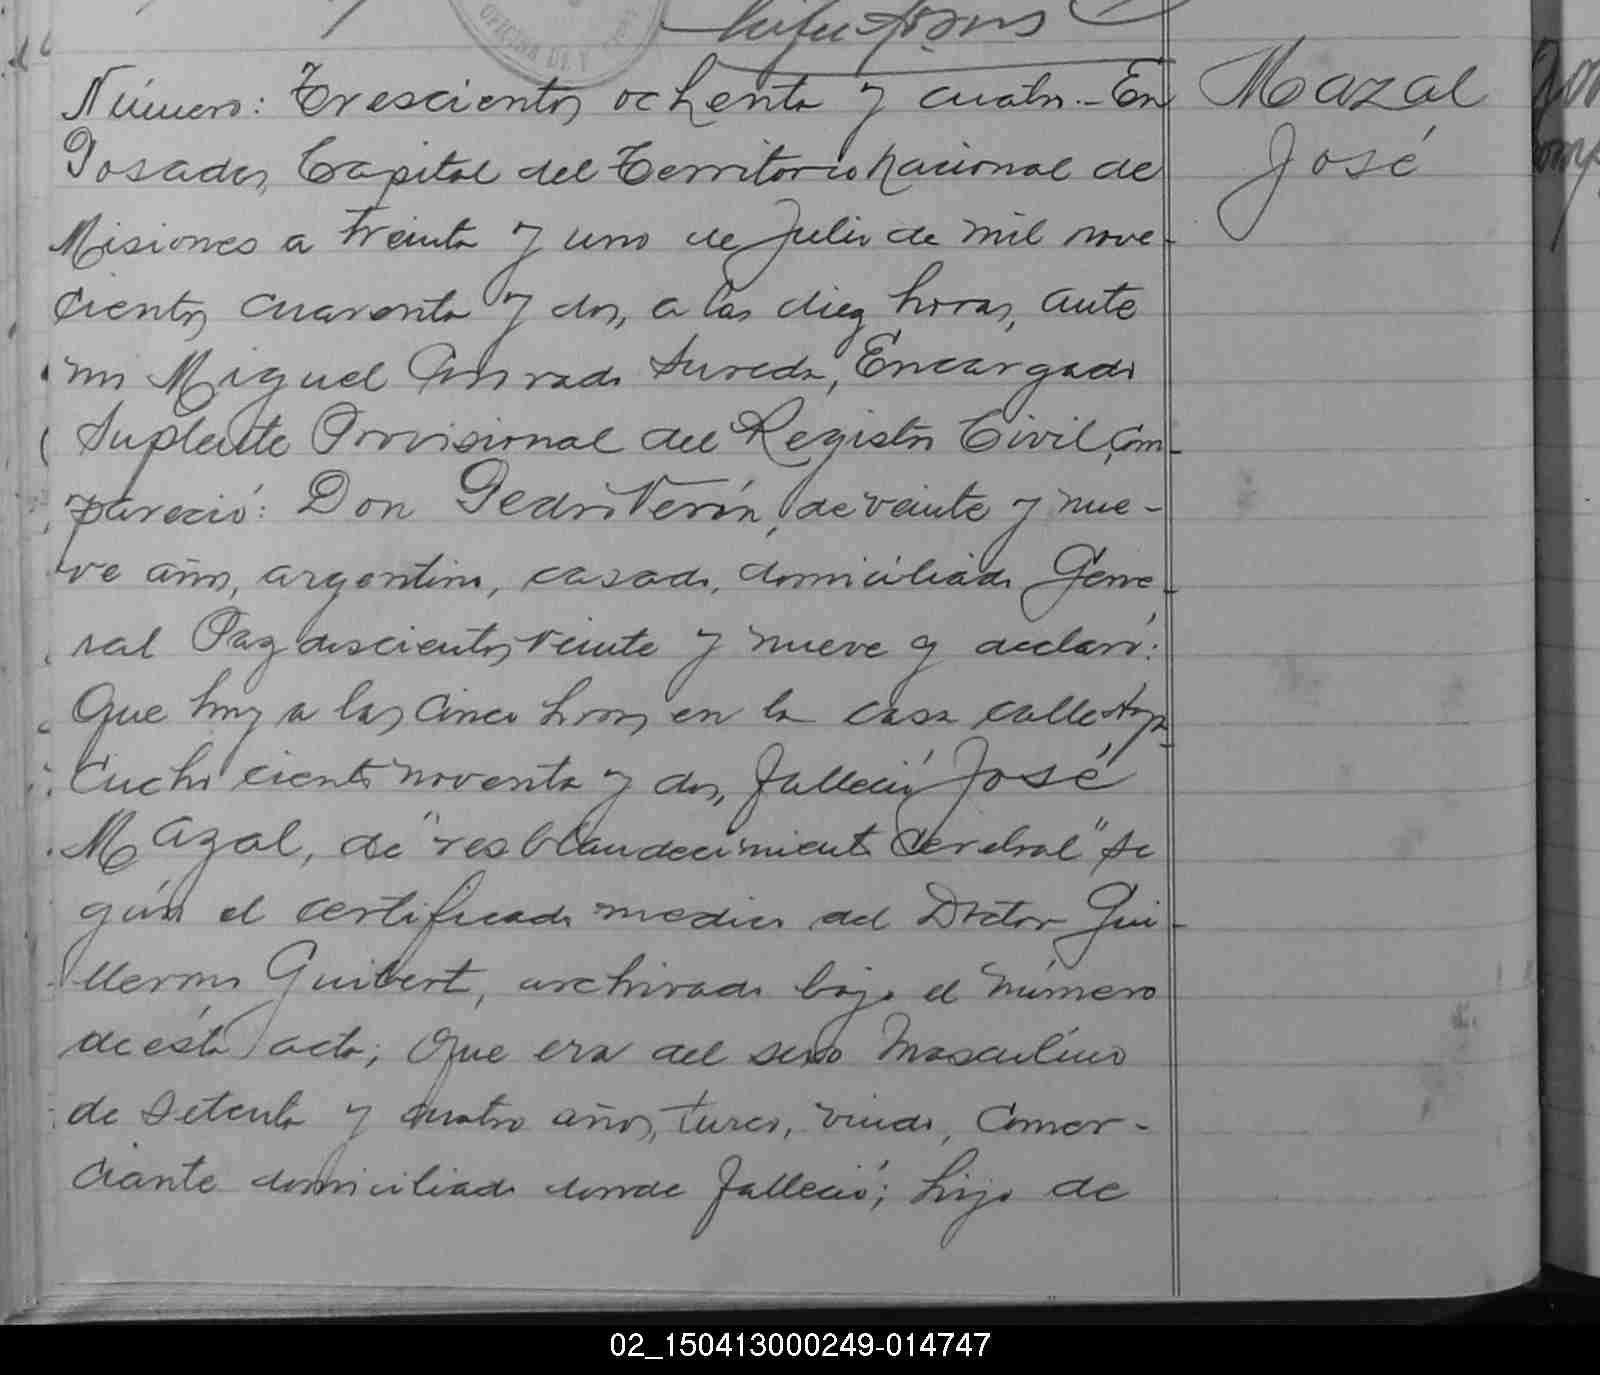 OFICINA DE
Número: Trescientos ochenta y cuatro.- En
Posadas, Capital del Territorio Nacional de
Misiones a treinta y uno de Julio de mil nove-
cientos cuarenta y dos, a las diez horas, ante
mi Miguel Conrado Sureda, Encargado
Suplente Provisional del Registro Civil, com-
pareció: Don Pedro Verón, de veinte y nue-
ve años, argentino, casado, domiciliado Gene-
ral Paz doscientos veinte y nueve y declaró:
Que hoy a las cinco horas, en la casa calle Aya-
cucho ciento noventa y dos, falleció José
Mazal, de "resblandecimiento cerebral" se
gún el certificado medico del Doctor Gui-
llermo Guibert, archivado bajo el número
de ésta acta; Que era del sexo masculino
de setenta y cuatro años, turco, viudo, comer-
ciante domiciliado donde falleció; hijo de
Mazal
José
02_150413000249-014747